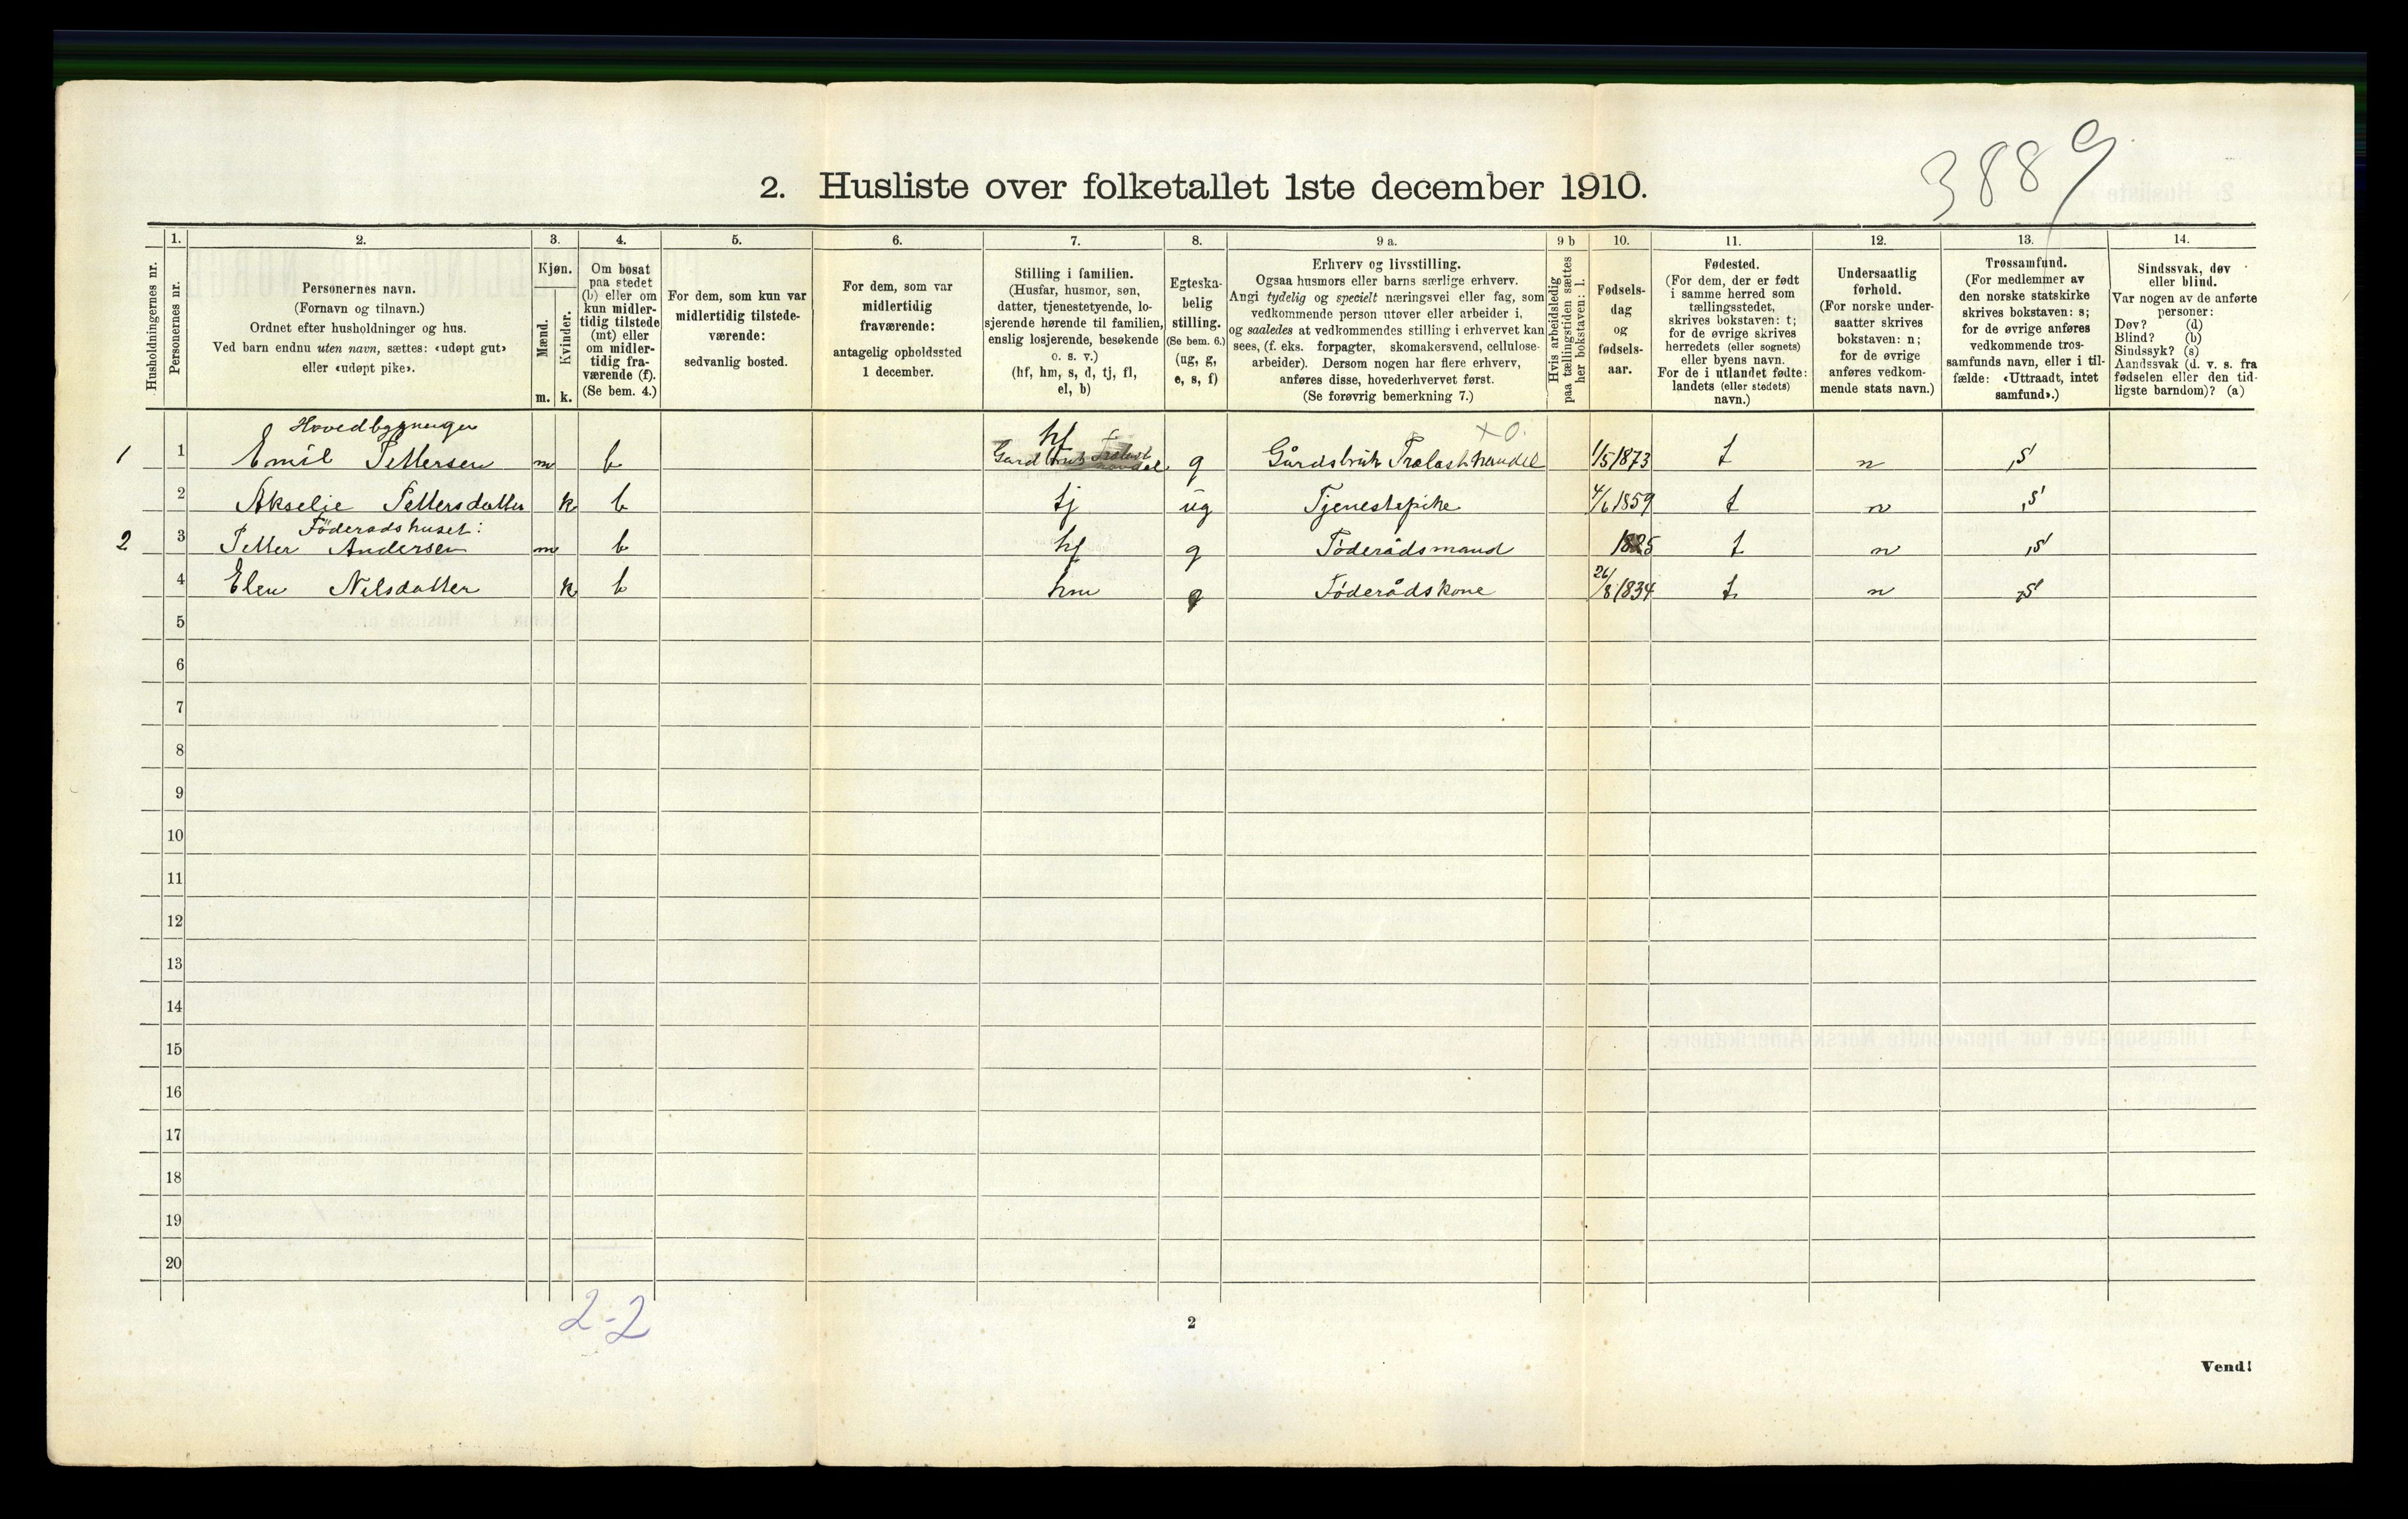 3889
2. Husliste over folketallet 1ste december 1910.
Husholdningernes nr.
1.
Personernes nr.
2.
Personernes navn.
(Fornavn og tilnavn.)
Ordnet efter husholdninger og hus.
Ved barn endnu uten navn, sættes: «udøpt gut»
eller «udøpt pike».
3.
Kjøn.
Mænd.
Kvinder.
m. k.
4.
Om bosat
paa stedet
(b) eller om
kun midler-
tidig tilstede
(mt) eller
om midler-
tidig fra-
værende (f).
(Se bem. 4.)
5.
For dem, som kun var
midlertidig tilstede-
værende:
sedvanlig bosted.
6.
For dem, som var
midlertidig
fraværende:
antagelig opholdssted
1 december.
7.
Stilling i familien.
(Husfar, husmor, søn,
datter, tjenestetyende, lo-
sjerende hørende til familien,
enslig losjerende, besøkende
o. s. v.)
(hf, hm, s, d, tj, fl,
el, b)
8.
Egteska-
belig
stilling.
(Se bem. 6.)
(ug, g,
e, s, f)
9 a.
Erhverv og livsstilling.
Ogsaa husmors eller barns særlige erhverv.
Angi tydelig og specielt næringsvei eller fag, som
vedkommende person utøver eller arbeider i,
og saaledes at vedkommendes stilling i erhvervet kan
sees, (f. eks. forpagter, skomakersvend, cellulose-
arbeider). Dersom nogen har flere erhverv,
anføres disse, hovederhvervet først.
(Se forøvrig bemerkning 7.)
9 b
Hvis arbeidsledig
paa tællingstiden sættes
her bokstaven: l.
10.
Fødsels-
dag
og
fødsels-
aar.
11.
Fødested.
(For dem, der er født
i samme herred som
tællingsstedet,
skrives bokstaven: t;
for de øvrige skrives
herredets (eller sognets)
eller byens navn.
For de i utlandet fødte:
landets (eller stedets)
navn.)
12.
Undersaatlig
forhold.
(For norske under-
saatter skrives
bokstaven: n;
for de øvrige
anføres vedkom-
mende stats navn.)
13.
Trossamfund.
(For medlemmer av
den norske statskirke
skrives bokstaven: s;
for de øvrige anføres
vedkommende tros-
samfunds navn, eller i til-
fælde: «Uttraadt, intet
samfund».)
14.
Sindssvak, døv
eller blind.
Var nogen av de anførte
personer:
Døv? (d)
Blind? (b)
Sindssyk? (s)
Aandssvak (d. v. s. fra
fødselen eller den tid-
ligste barndom)? (a)
Hovedbygningen
1 1 Emil Pettersen m b hf g Gårdsbruk Trælasthandel x o. 1/5 1873 t n s
2 Akselie Pettersdatter k b tj ug Tjenestepike 4/6 1859 t n s
Föderadshuset:
2 3 Petter Andersen m b hf g Föderådsmand 1825 t n s
4 Elen Nilsdatter k b hm g Föderådskone 26/8 1834 t n s
5
6
7
8
9
10
11
12
13
14
15
16
17
18
19
20
2-2
2
Vend!